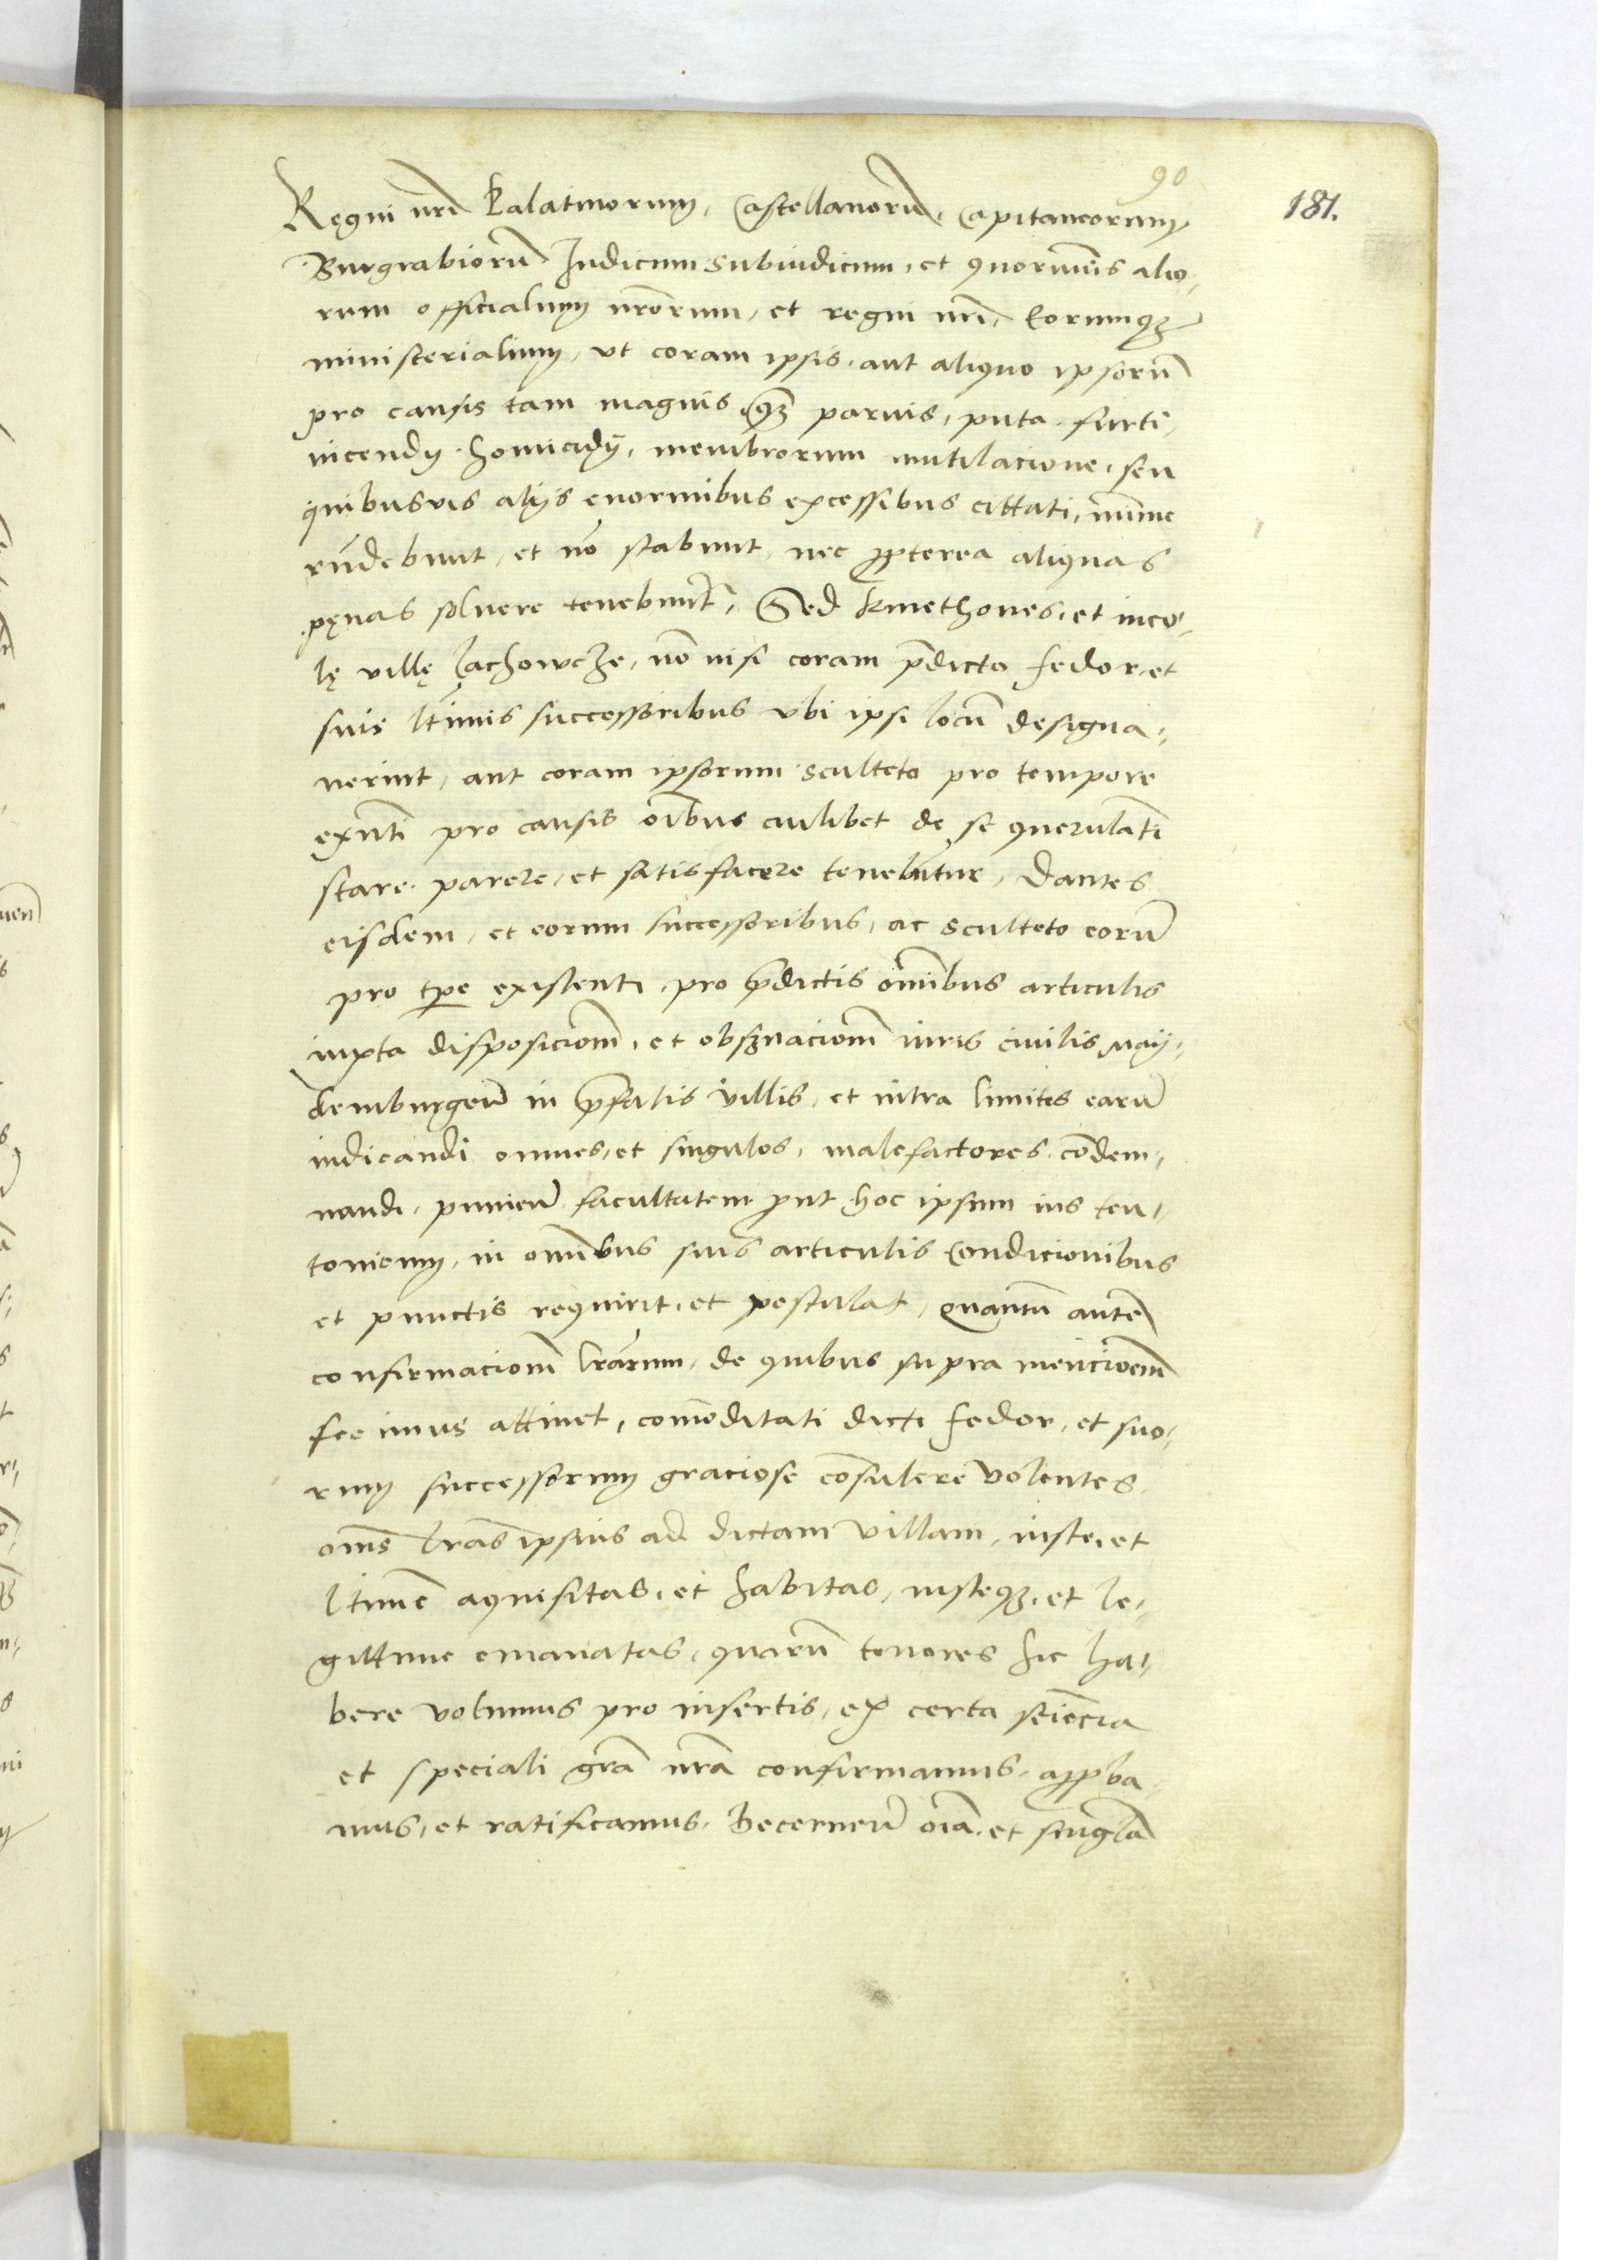 90
181.
Regni nrĩ Palatinorum, Castellanorũ, Capitaneorum,
Burgrabiorũ Iudicum Subiudicum, et quorumuis alio,
rum officialium nr̃orum, et regni nrĩ, Eorumq3
ministerialium, vt coram ipsis, aut aliquo ipsorũ
pro causis tam magnis q̃3 paruis, puta furti,
incendij homicidij, membrorum mutilacione, seu
quibusuis alijs enormibus excessibus cittati, minime
rñdebunt, et nõ stabunt, nec ꝓpterea aliquas
pęnas soluere tenebunt̃, Sed kmethones, et inco,
lę villę Lachowcze, nõ nisi coram p̃dicto fedor, et
suis ltimis successoribus vbi ipsi locũ designa,
uerint, aut coram ipsorum sculteto pro tempore
exñti pro causis oĩbus cuilibet de se querulãti
stare parere, et satisfacere tenebũtur, Dantes
eisdem, et eorum successoribus, ac sculteto eorũ
pro tp̃e existenti, pro p̃dictis omĩbus articulis
iuxta disposiciom̃, et obs3uaciom̃ iuris ciuilis May,
demburgeñ in p̃fatis villis, et intra limites earũ
iudicandi omnes, et singulos, malefactores, cõdem,
nandi, punieñ facultatem ꝓut hoc ipsum ius teu,
tonicum, in omĩbus suis articulis Condicionibus
et punctis requirit, et postulat, Quantũ autẽ
confirmaciom̃ lrãrum, de quibus supra mencioem̃
fecimus attinet, com̃oditati dicti fedor, et suo,
rum successorum graciose cõsulere volentes
oms̃ lrãs ipsius ad dictam villam, iuste, et
ltime aquisitas, et habitas, iusteq3, et le,
gittime emanatas, quarũ tenores hic ha,
bere volumus pro insertis, ex certa sciẽcia
et speciali grã nrã confirmamus, apꝓba,
mus, et ratificamus, Decerneñ oĩa, et singlã